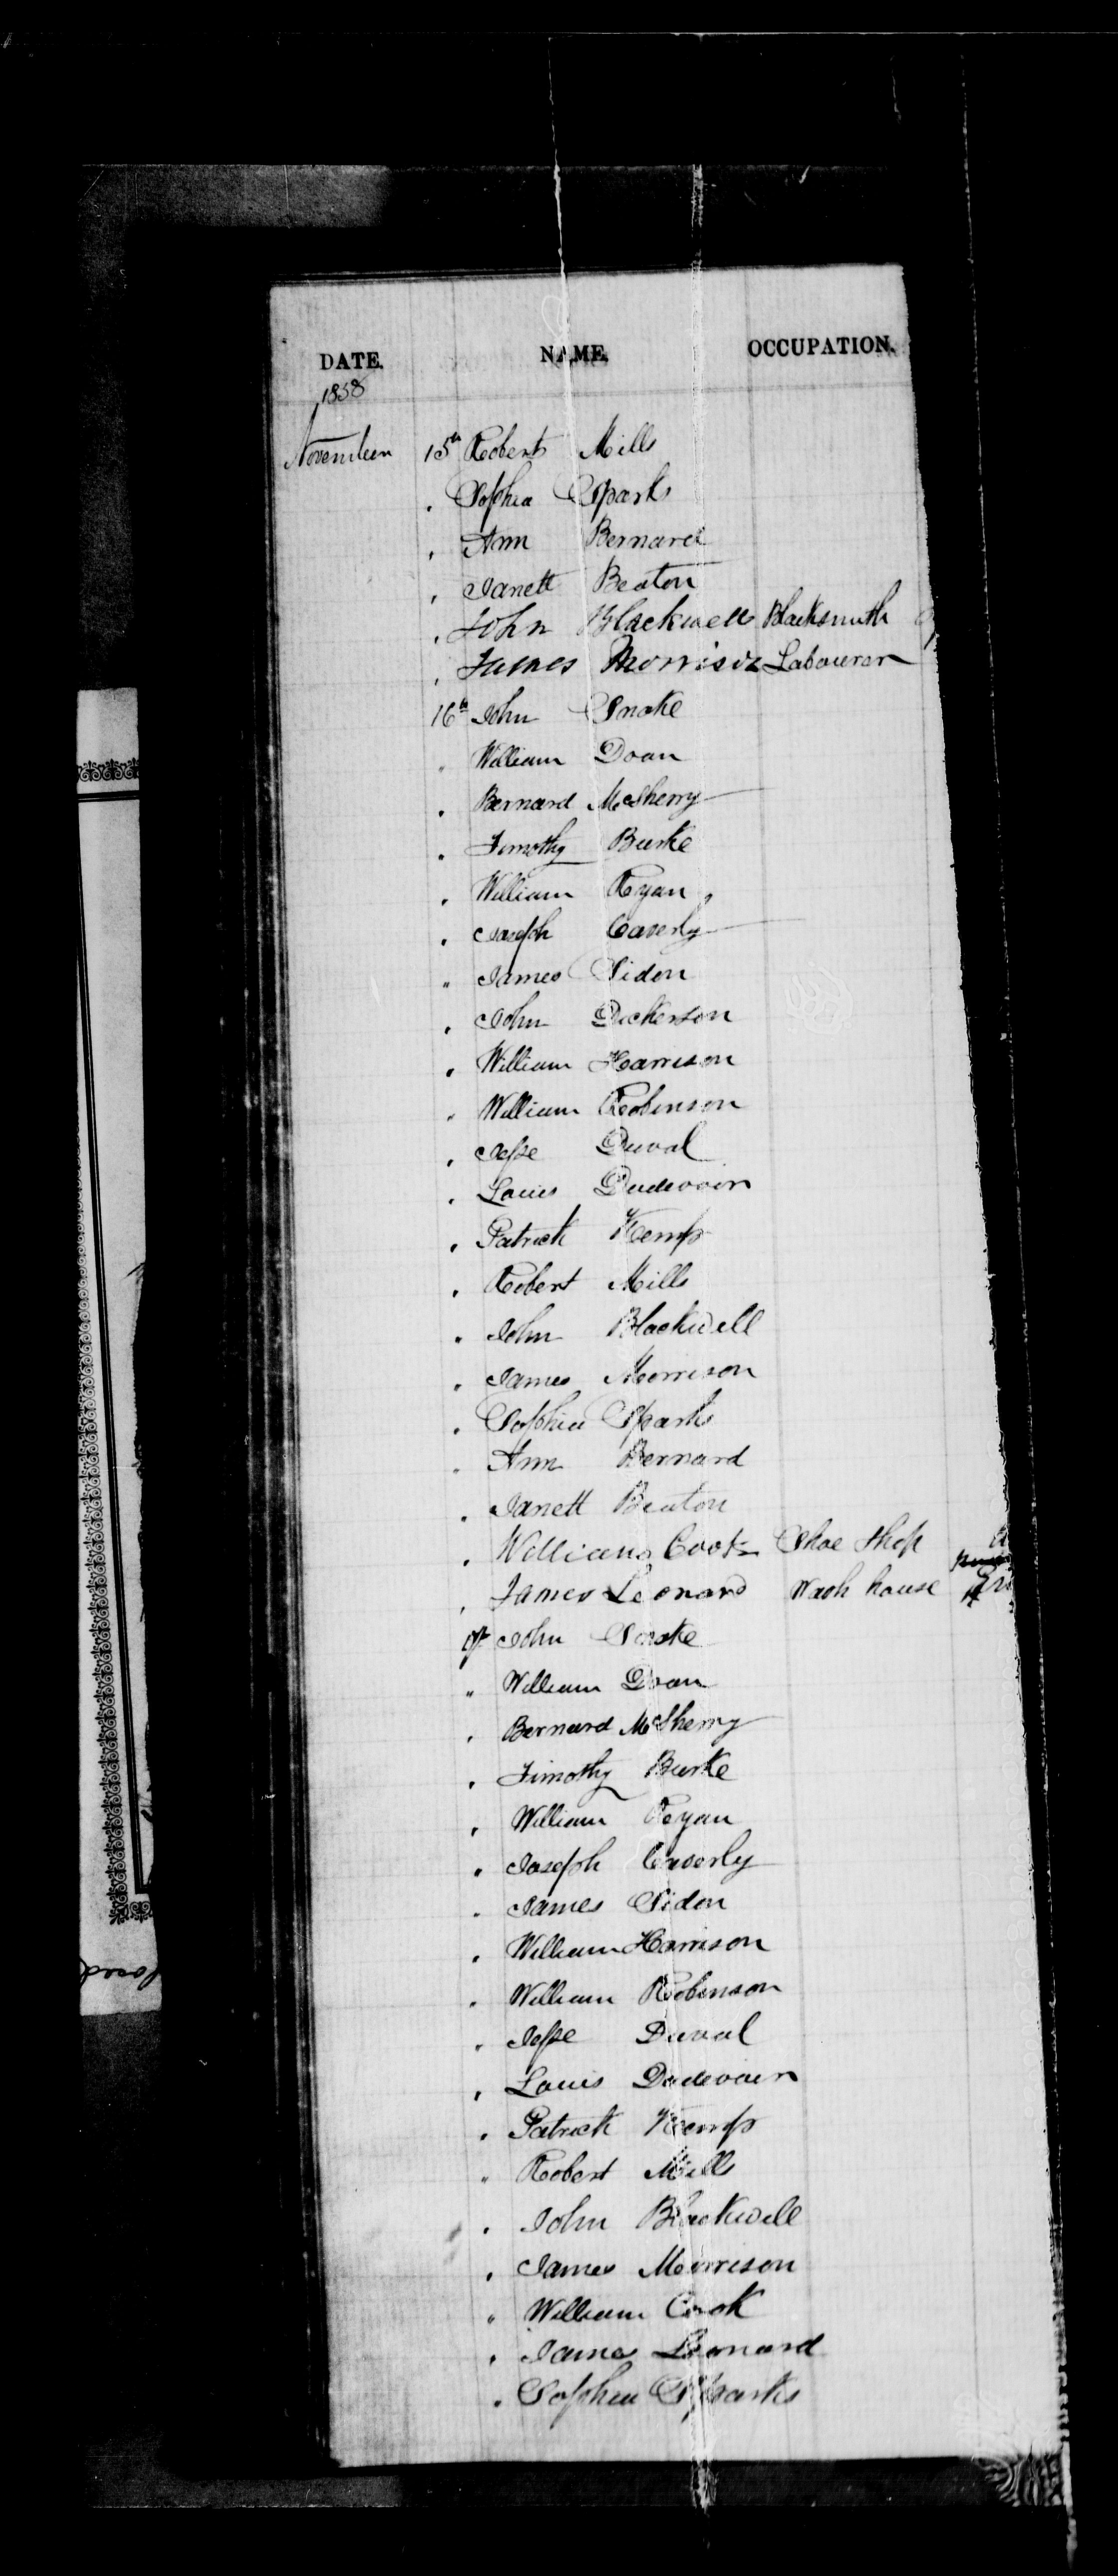 DATE. NAME. OCCUPATION.
1858
November 15th Robert Mills
" Sophia Sparks
" Ann Bernard
" Janett Beaton
" John Blackwell Blacksmith
" James Morrison Labourer
16th John Snake
" William Doan
" Bernard McSherry
" Timothy Burke
" William Ryan
" Joseph Caverly
" James Sidon
" John Dickerson
" William Harrison
" William Robinson
" Jesse Duval
" Louis Dudevoir
" Patrick Kemp
" Robert Mills
" John Blackwell
" James Morrison
" Sophia Sparks
" Ann Bernard
" Janett Beaton
" William Cook Shoe Shop
" James Leonard Wash house
John Snake
" William Doan
" Bernard McSherry
" Timothy Burke
" William Ryan
" Joseph Caverly
" James Sidon
" William Harrison
" William Robinson
" Jesse Duval
" Louis Dudevoir
" Patrick Kemp
" Robert Mills
" John Blackwell
" James Morrison
" William Cook
" James Leonard
" Sophia Sparks